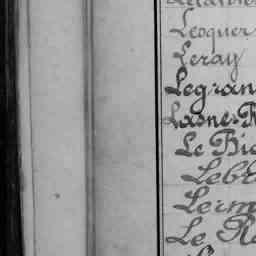 Lecquer
Leray
Legran
Lasne-R
Le Bi
Lebr
Lerm
Le R